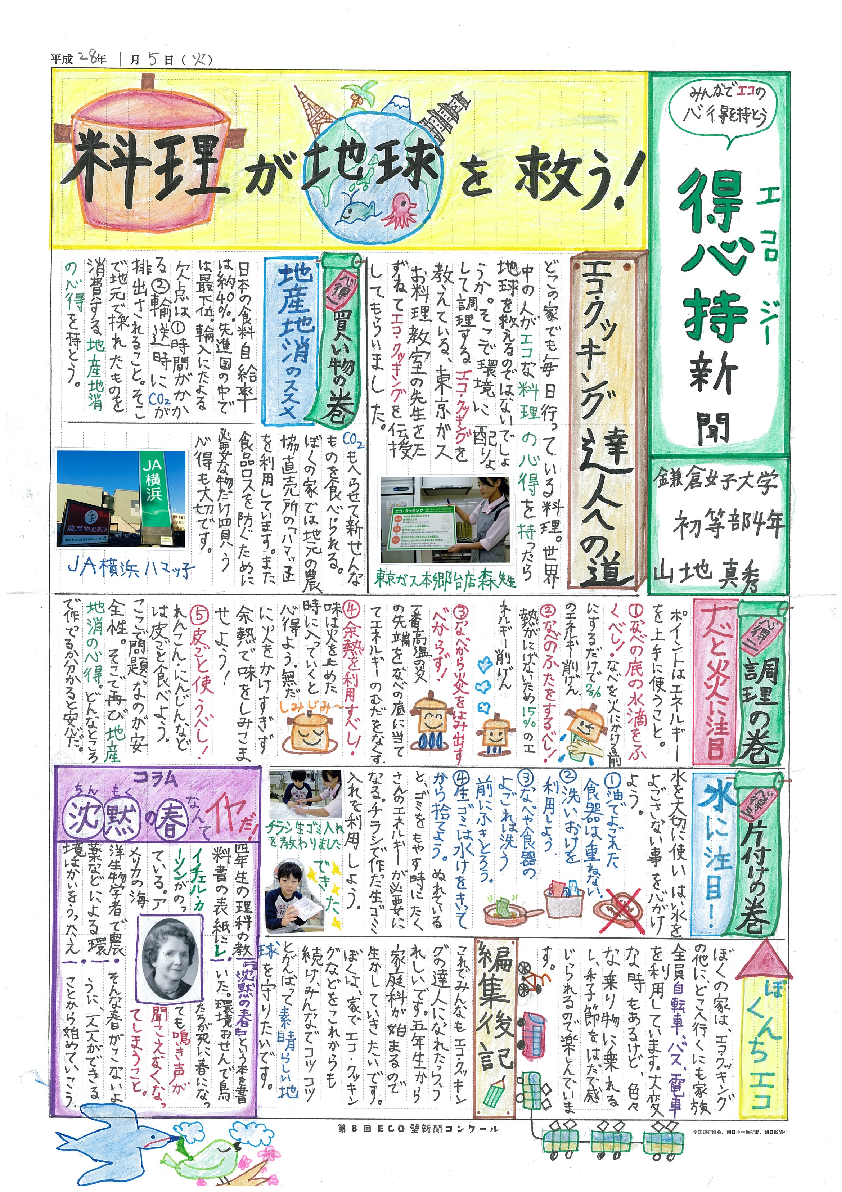 平成28年1月5日(火)
みんなでエコの
心得を持とう
エコロジー
得心持新聞
鎌倉女子大学
初等部4年
山地真秀
料理が地球を救う!
エコ・クッキング達人への道
どこの家でも毎日行っている料理。世界
中の人がエコな料理の心得を持ったら
地球を救えるのではないでしょ
うか。そこで環境に配りょ
して調理するエコ・クッキングを
教えている、東京ガス
お料理教室の先生をた
ずねてエコ・クッキングを伝授
してもらいました。
東京ガス本郷台店森先生
心得
買い物の巻
地産地消のススメ
日本の食料自給率
は約40%。先進国の中で
は最下位。輸入にたよる
欠点は①時間がかか
る②輸送時にCO₂が
排出されること。そこ
で地元で採れたものを
消費する地産地消
の心得を持とう。
CO₂もへらせて新せんな
ものを食べられる。
ぼくの家では地元の農
協直売所のハマッ子
を利用しています。また
食品ロスを防ぐために
必要な物だけ買う
心得も大切です。
JA横浜
JA横浜ハマッ子
心得
調理の巻
ナベと火に注目
ポイントはエネルギー
を上手に使うこと。
①なべの底の水滴をふ
くべし!なべを火にかける前
にするだけで2%
のエネルギー削げん
②なべのふたをするべし!
熱がにげないため15%のエ
ネルギー削げん
③なべから炎をはみ出す
べからず!
一番高温の炎
の先端をなべの底に当て
てエネルギーのむだをなくす
④余熱を利用すべし!
味は火を止めた
時に入っていくと
心得よう。無だ
に火をかけすぎず
余熱で味をしみこま
せよう!
しみじみ〜
⑤皮ごと使うべし!
れんこん・にんじんなど
は皮ごと食べよう。
ここで問題なのが安
全性。そこで再び地産
地消の心得。どんなところ
で作ってるか分かると安心だ。
心得
片付けの巻
水に注目!
水を大切に使いはい水を
よごさない事を心がけ
よう。
①油でよごれた
食器は重ねない
②洗いおけを
利用しよう
③なべや食器の
よごれは洗う
前にふきとろう
④生ゴミは水けをきって
から捨てよう。ぬれている
と、ゴミをもやす時にたく
さんのエネルギーが必要に
なる。チラシで作った生ゴミ
入れを利用しよう。
チラシ生ゴミ入れ
を教わりました
できた
ぼくんちエコ
ぼくの家は、エコクッキング
の他に、どこへ行くにも家族
全員自転車、バス、電車
を利用しています。大変
な時もあるけど、色々
な乗り物に乗れる
し、季節をはだで感
じられるので楽しんでいま
す。
編集後記
これでみんなもエコ・クッキン
グの達人になれたらうっ
れしいです。五年生から
家庭科が始まるので
生かしていきたいです。
ぼくは、家でエコ・クッキン
グなどをこれからも
続けみんなでコツコツ
とがんばって素晴らしい地
球を守りたいです。
コラム
ちんもく
沈黙の春なんてイヤだ!
四年生の理科の教
料書の表紙にレ
イチェル・カ
ーソンがのっ
ている。ア
メリカの海
洋生物学者で農
薬などによる環
境はかいをうったえ
「沈黙の春」という本を書
いた。環境おせんで鳥
たちが死に春になっ
ても鳴き声が
聞こえなくなっ
てしまうこと。
そんな春がこないよ
うに、一人一人ができる
ことから始めていこう。
第8回ECO壁新聞コンクール